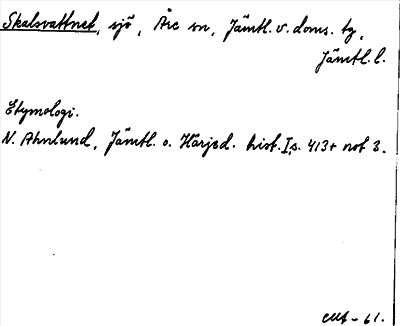 Skalsvattnet, sjö, Åre sn, Jämtl. v. doms. tg,
Jämtl. l.
Etymologi.
N. Ahnlund, Jämtl. o. Härjed. hist. I, s. 413 + not 3.
-61.